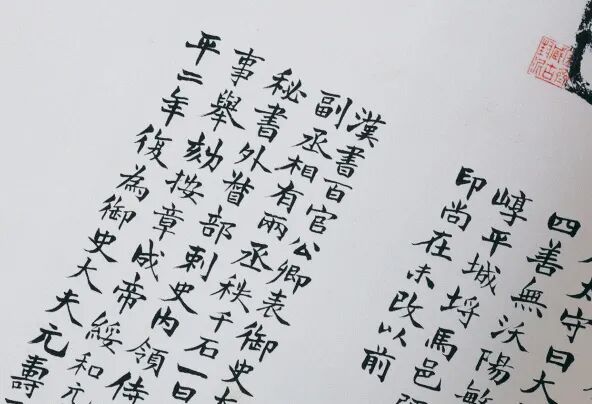 太守曰大
四善無沃陽
崞平城埒馬邑
印尚在未改以前
漢書百官公卿表御史大
副丞相有兩丞秩千石一曰
秘書外督部刺史内領侍
事舉劾按章成帝綏和元
平二年復為御史大夫元壽